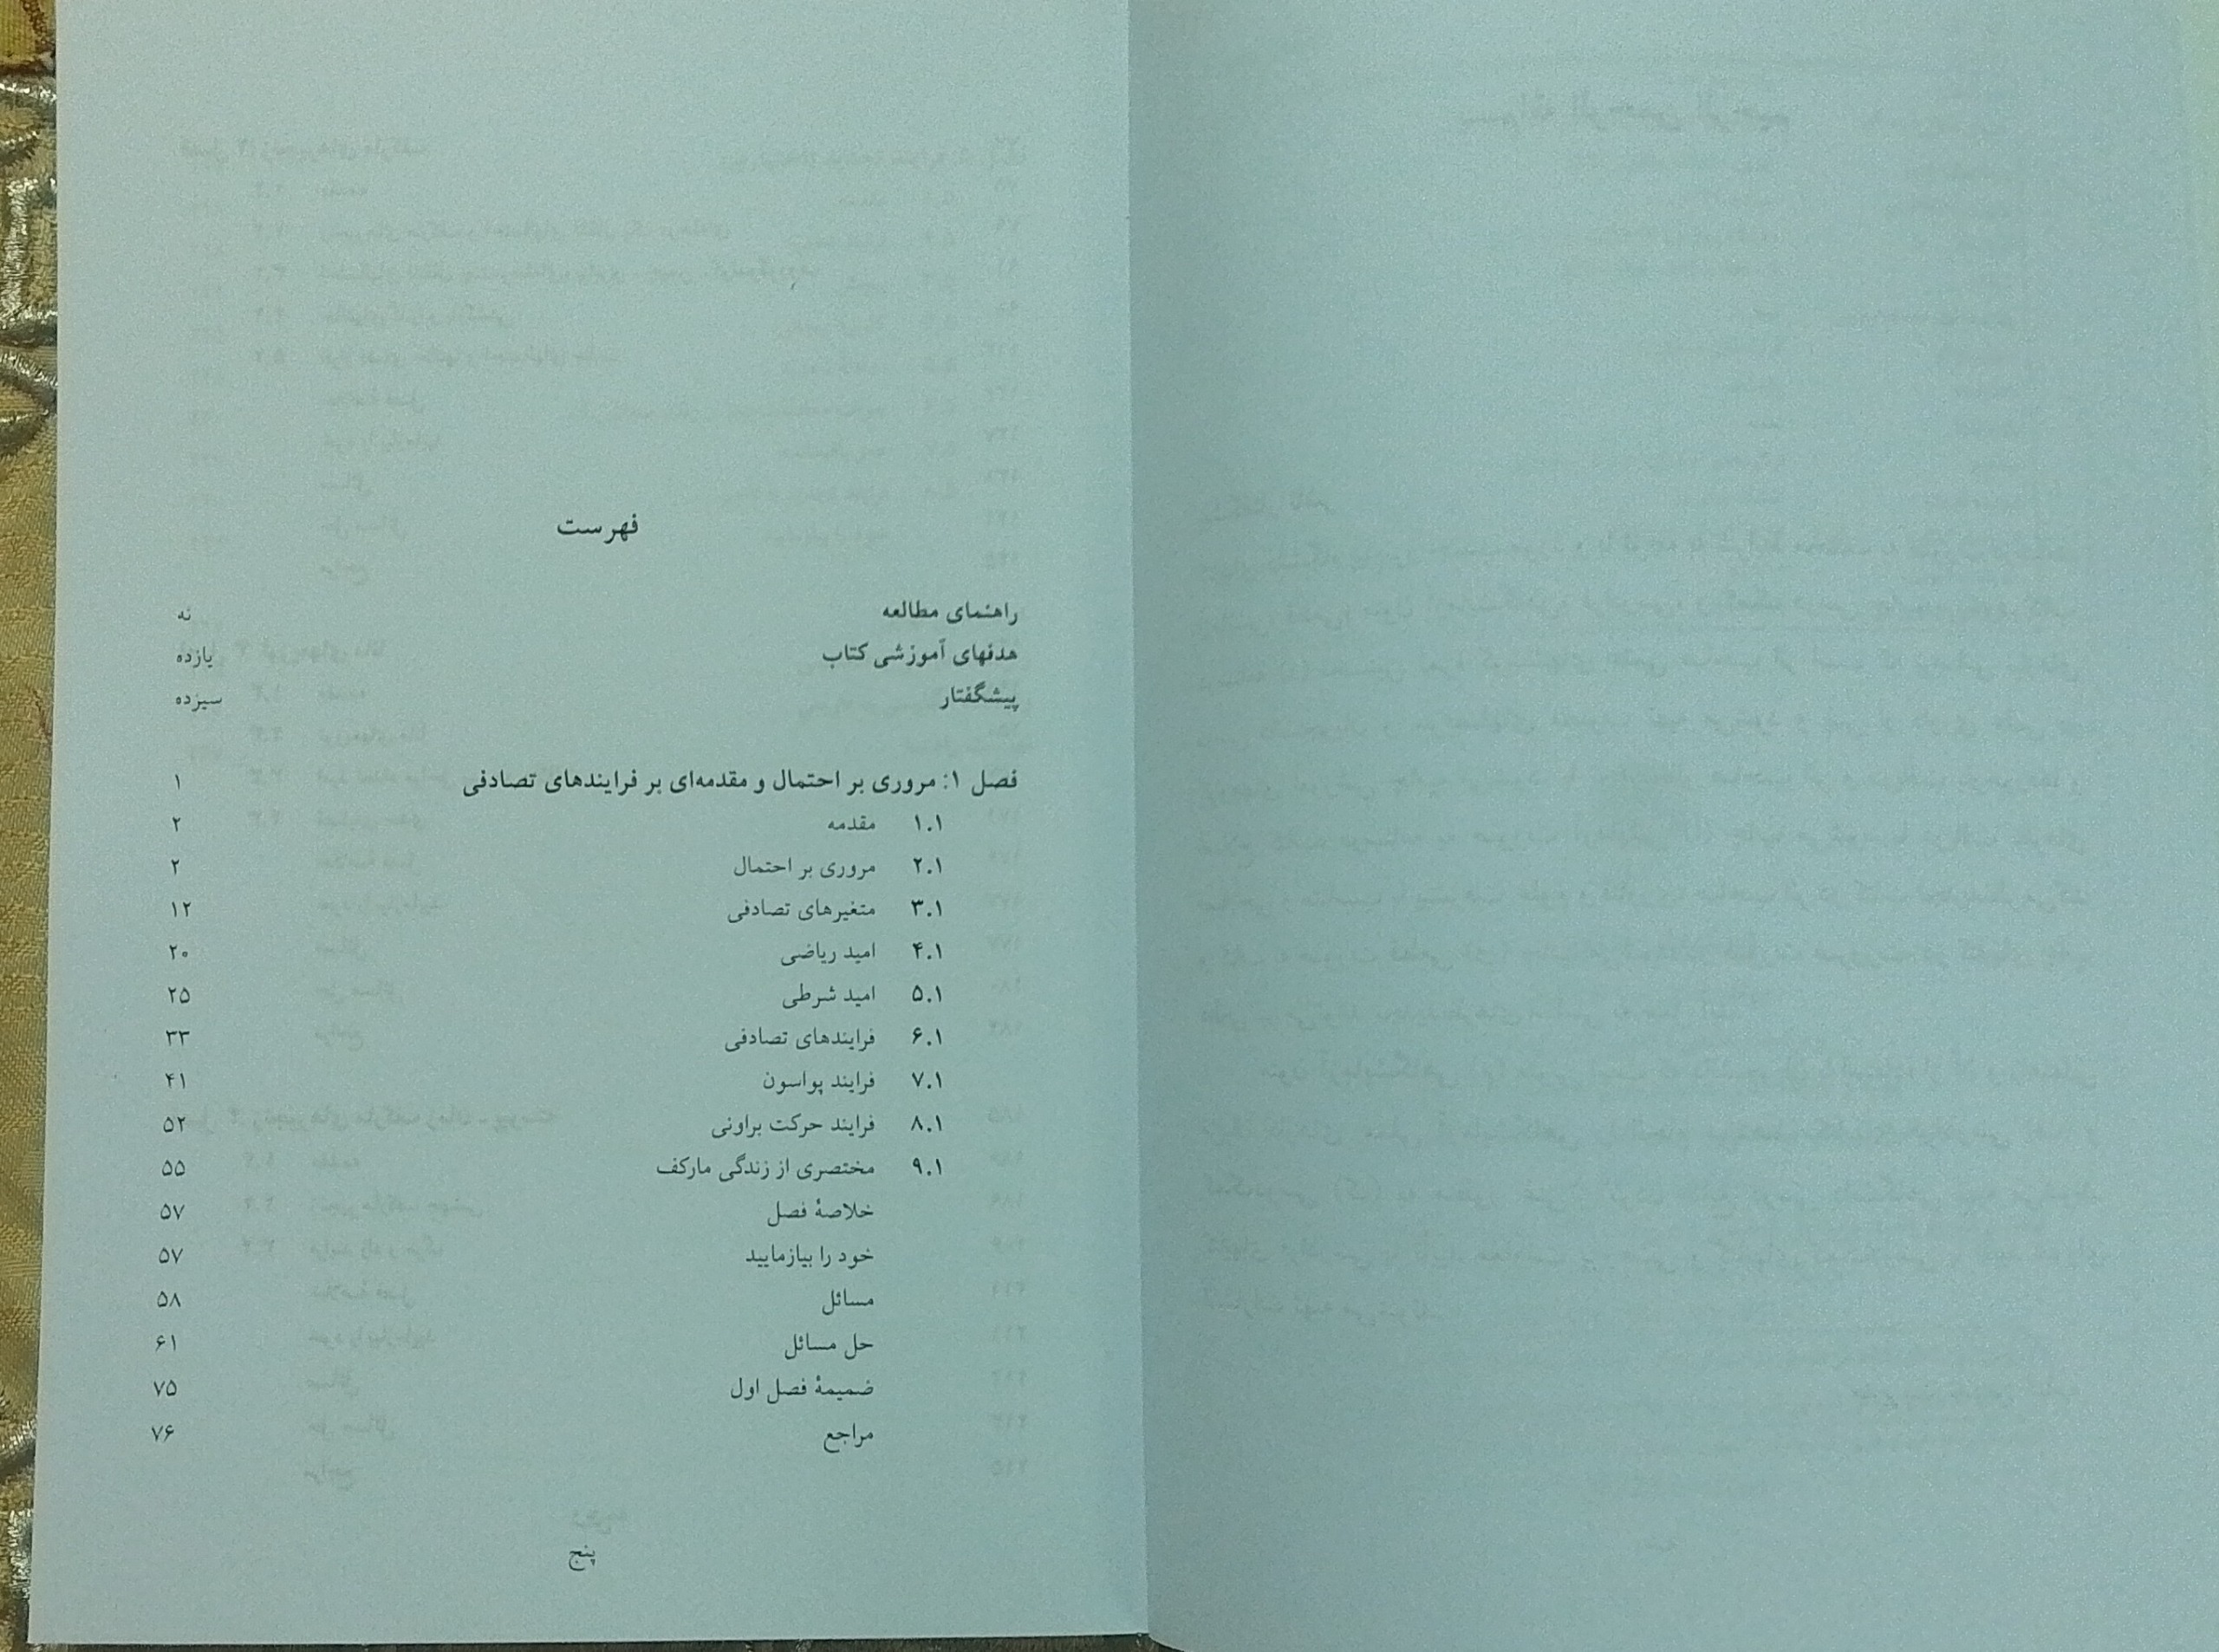 فهرست
راهنمای مطالعه نه
هدفهای آموزشی کتاب یازده
پیشگفتار سیزده
فصل ۱: مروری بر احتمال و مقدمه‌ای بر فرایندهای تصادفی ۱
۱.۱ مقدمه ۲
۲.۱ مروری بر احتمال ۲
۳.۱ متغیرهای تصادفی ۱۲
۴.۱ امید ریاضی ۲۰
۵.۱ امید شرطی ۲۵
۶.۱ فرایندهای تصادفی ۳۳
۷.۱ فرایند پواسون ۴۱
۸.۱ فرایند حرکت براونی ۵۲
۹.۱ مختصری از زندگی مارکف ۵۵
خلاصهٔ فصل ۵۷
خود را بیازمایید ۵۷
مسائل ۵۸
حل مسائل ۶۱
ضمیمهٔ فصل اول ۷۵
مراجع ۷۶
پنج